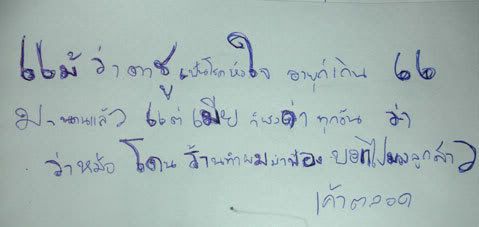 แม้ ว่า ตาชู เป็นโรคหัวใจ อายุก็เกิน
มานานแล้ว แต่ เมีย ก็ ด่า ทุกวัน ว่า
ว่าหมัอ โดน ร้านทำผม บอกไป ลูกสาว
เค้าตลอด